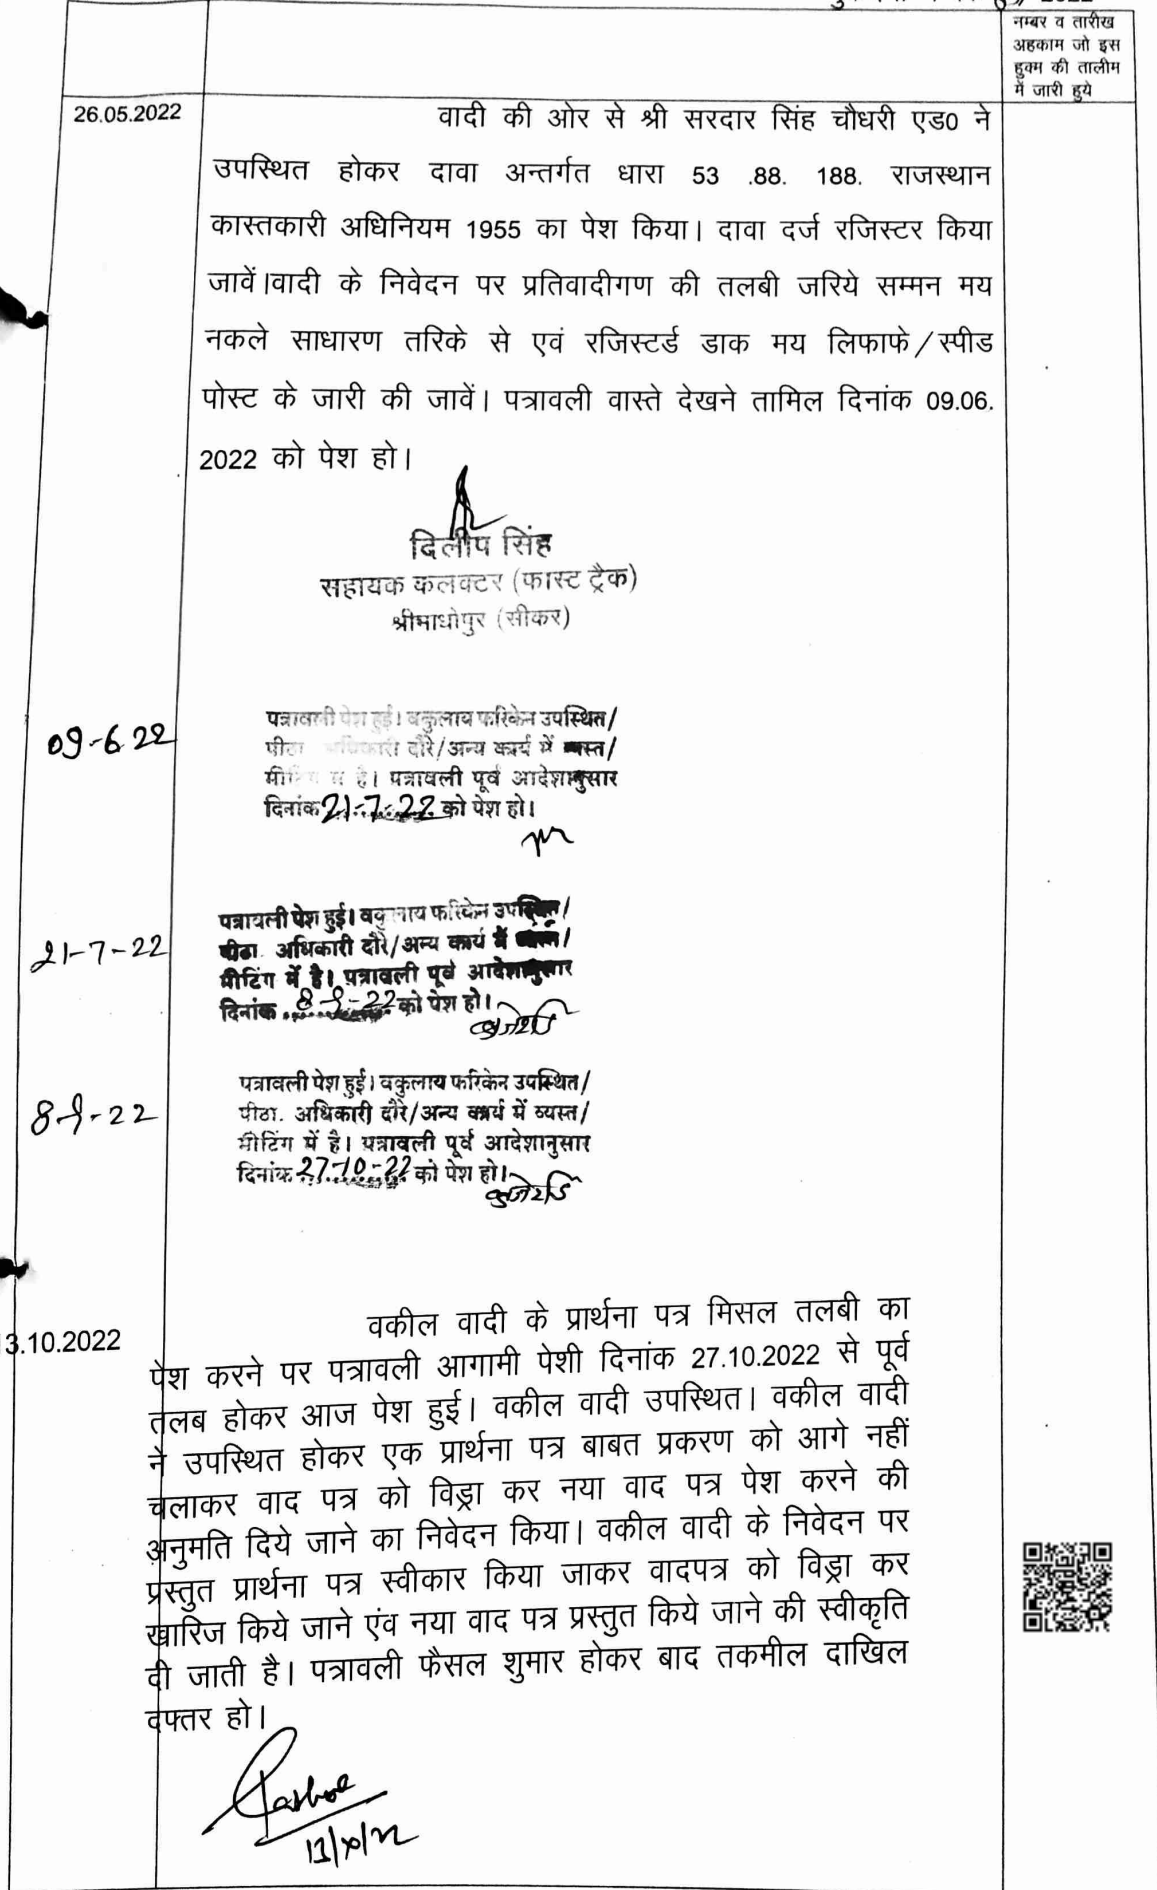 2022
नम्बर व तारीख
अहकाम जो इस
हुक्म की तालीम
में जारी हुये
26.05.2022
वादी की ओर से श्री सरदार सिंह चौधरी एड0 ने
उपस्थित होकर दावा अन्तर्गत धारा 53 .88. 188. राजस्थान
कास्तकारी अधिनियम 1955 का पेश किया। दावा दर्ज रजिस्टर किया
जावें।वादी के निवेदन पर प्रतिवादीगण की तलबी जरिये सम्मन मय
नकले साधारण तरिके से एवं रजिस्टर्ड डाक मय लिफाफे/स्पीड
पोस्ट के जारी की जावें। पत्रावली वास्ते देखने तामिल दिनांक 09.06.
2022 को पेश हो।
दिलीप सिंह
सहायक कलक्टर (फास्ट ट्रैक)
श्रीमाधोपुर (सीकर)
09-6-22
पत्रावली पेश हुई। वकुलाय फरिकेन उपस्थित/
पीठा. अधिकारी दौरे/अन्य कार्य में व्यस्त/
मीटिंग में है। पत्रावली पूर्व आदेशानुसार
दिनांक 21-7-22 को पेश हो।
21-7-22
पत्रावली पेश हुई। वकुलाय फरिकेन उपस्थित/
पीठा. अधिकारी दौरे/अन्य कार्य में व्यस्त/
मीटिंग में है। पत्रावली पूर्व आदेशानुसार
दिनांक 8-9-22 को पेश हो।
8-9-22
पत्रावली पेश हुई। वकुलाय फरिकेन उपस्थित/
पीठा. अधिकारी दौरे/अन्य कार्य में व्यस्त/
मीटिंग में है। पत्रावली पूर्व आदेशानुसार
दिनांक 27-10-22 को पेश हो।
3.10.2022
वकील वादी के प्रार्थना पत्र मिसल तलबी का
पेश करने पर पत्रावली आगामी पेशी दिनांक 27.10.2022 से पूर्व
तलब होकर आज पेश हुई। वकील वादी उपस्थित। वकील वादी
ने उपस्थित होकर एक प्रार्थना पत्र बाबत प्रकरण को आगे नहीं
चलाकर वाद पत्र को विड्रा कर नया वाद पत्र पेश करने की
अनुमति दिये जाने का निवेदन किया। वकील वादी के निवेदन पर
प्रस्तुत प्रार्थना पत्र स्वीकार किया जाकर वादपत्र को विड्रा कर
खारिज किये जाने एंव नया वाद पत्र प्रस्तुत किये जाने की स्वीकृति
दी जाती है। पत्रावली फैसल शुमार होकर बाद तकमील दाखिल
दफ्तर हो।
13/10/22